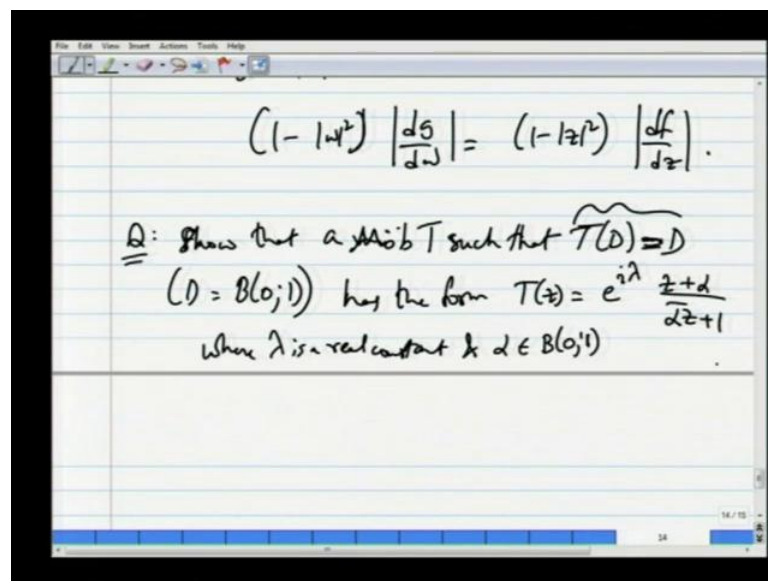 File Edit View Insert Actions Tools Help
(1-|w|²) |dg/dw| = (1-|z|²) |df/dz|.
Q: Show that a Möb T such that T(D) = D
(D = B(0;1)) has the form T(z) = e^{iλ} (z+α)/(ᾱz+1)
where λ is a real constant & α ∈ B(0;1)
14/15
14